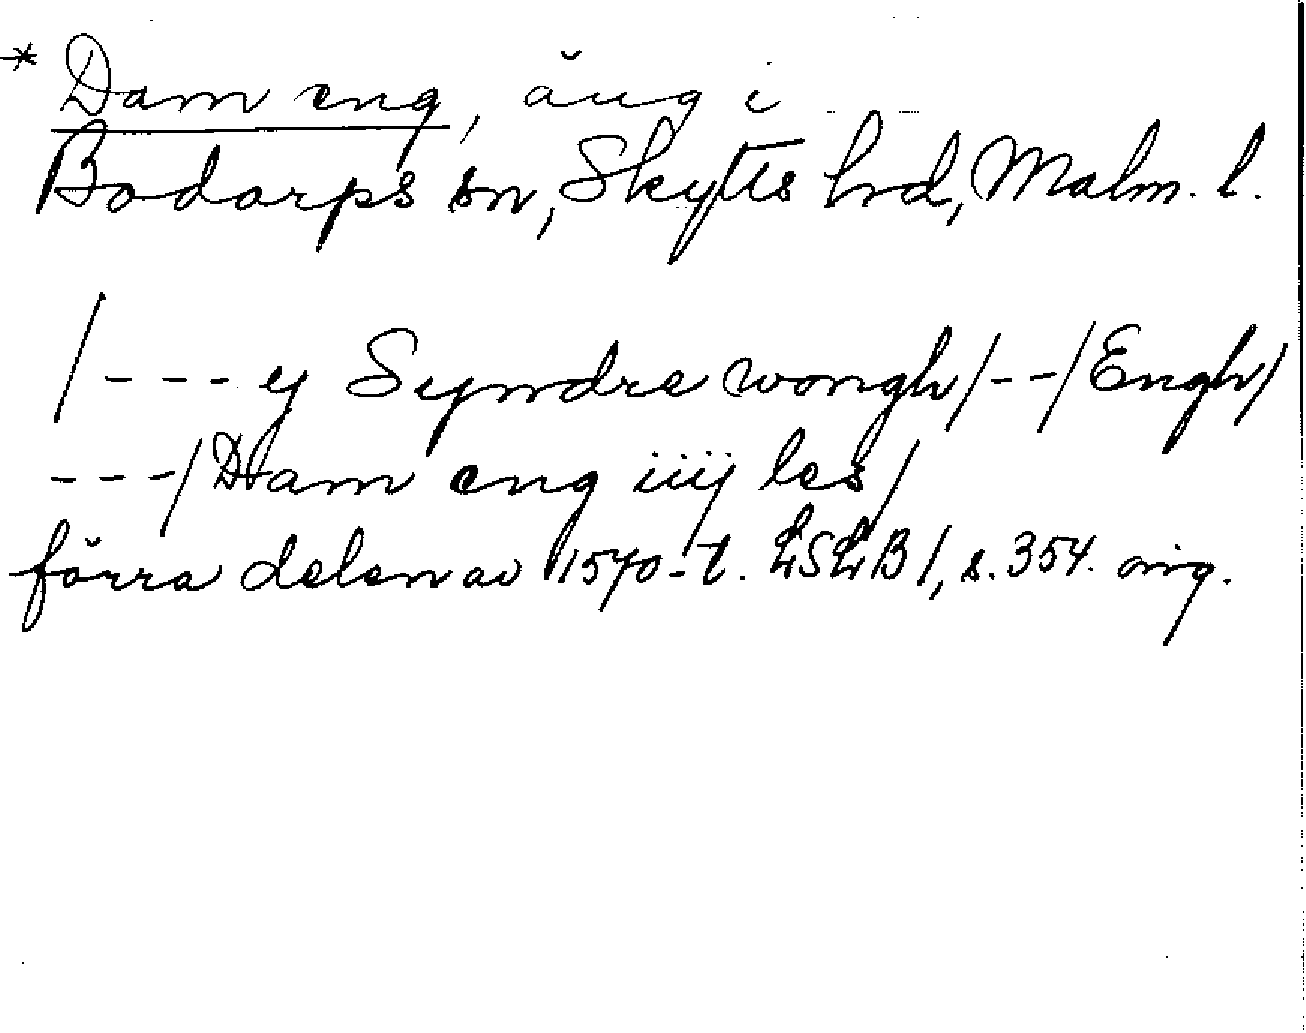 * Dam eng, äng i
Bodarps sn, Skytts hrd, Malm. l.
/---ij Syndre wongh/--/Engh/
---/Dam eng iiij les/
förra delen av 1570-t. LSLB 1, s. 354. orig.